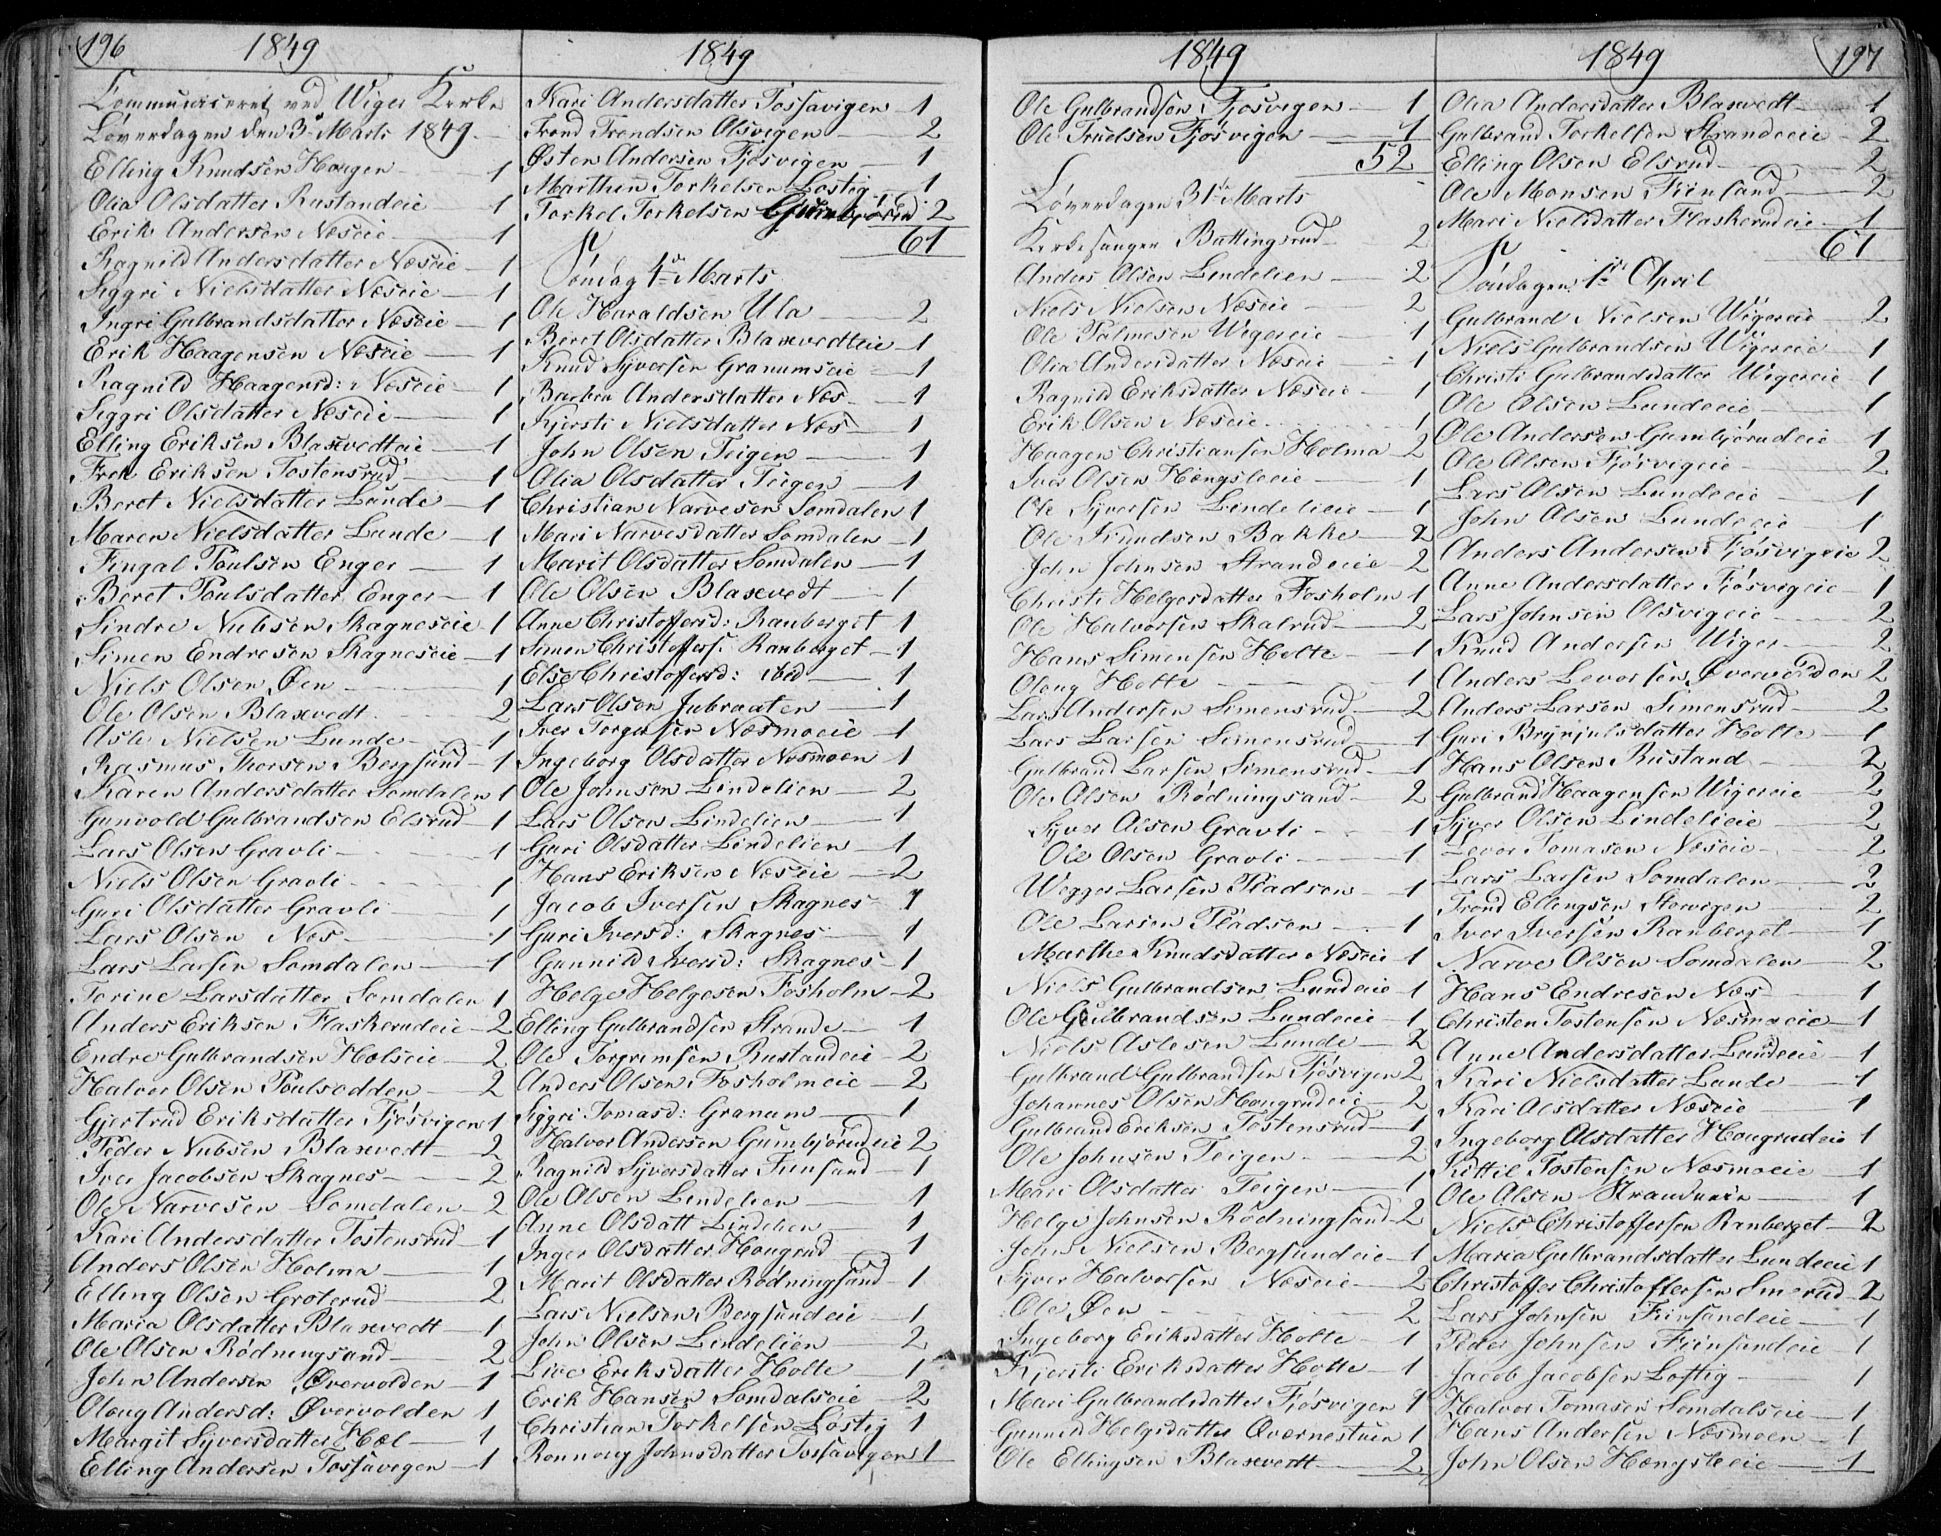 196 1849
Communiceret ved Wiger Kerke
Löverdagen den 3. Marts 1849.
Elling Knudsen Haugen 1
Olia Olsdatter Rustandeie 1
Erik Andersen Næseie 1
Ragnild Andersdatter Næseie 1
Siggri Nielsdatter Næseie 1
Ingri Gulbrandsdatter Næseie 1
Erik Haagensen Næseie 1
Ragnild Haagensd: Næseie 1
Siggri Olsdatter Næseie 1
Elling Eriksen Blaxevedteie 1
Erik Eriksen Tostensrud 1
Beret Nielsdatter Lunde 1
Maren Nielsdatter Lunde 1
Fingal Poulsen Enger 1
Beret Poulsdatter Enger 1
Sindre Nubsen Skagneseie 1
Simen Endresen Skagneseie 1
Niels Olsen Øen 1
Ole Olsen Blaxevedt 2
Asle Nielsen Lunde 1
Rasmus Thorsen Bergsund 1
Karen Andersdatter Somdalen 1
Gunvold Gulbrandsen Elsrud 1
Lars Olsen Gravli 1
Niels Olsen Gravli 1
Guri Olsdatter Gravli 1
Lars Olsen Næs 1
Lars Larsen Somdalen 1
Torine Larsdatter Somdalen 1
Anders Eriksen Flaskerudeie 2
Endre Gulbrandsen Holseie 2
Halvor Olsen Poulsedden 2
Gjertrud Eriksdatter Fjösvigen 1
Peder Nubsen Blaxevedt 2
Iver Jacobsen Skagnes 2
Ole Narvesen Somdalen 2
Kari Andersdatter Tostensrud 1
Anders Olsen Holma 1
Elling Olsen Groterud 2
Maria Olsdatter Blaxevedt 1
Ole Olsen Rödningsand 2
John Andersen Øvervolden 1
Olaug Andersd: Øvervolden 1
Margit Syversdatter Hæl 1
Elling Andersen Tossavigen 1
1849
Kari Andersdatter Tossavigen 1
Trond Trondsen Olsvigen 2
Østen Andersen Fjösvigen 1
Marthin Torkelsen Lostig 1
Torkel Torkelsen Gumbjörud 2
61
Söndag 4de Marts
Ole Haraldsen Ula 2
Beret Olsdatter Blaxevedteie 1
Knud Syversen Granumseie 1
Barbra Andersdatter Næs 1
Kjersti Nielsdatter Næs 1
John Olsen Teigen 1
Olia Olsdatter Teigen 1
Christian Narvesen Somdalen 1
Mari Narvesdatter Somdalen 1
Marit Olsdatter Somdalen 1
Ole Olsen Blaxevedt 1
Anne Christoffersd: Ranberget 1
Simen Christoffers: Ranberget 1
Else Christoffersd: ibid 1
Lars Olsen Jubraaten 1
Iver Torgersen Næsmoeie 1
Ingeborg Olsdatter Næsmoen 1
Ole Johnsen Lindelien 2
Lars Olsen Lindelien 1
Guri Olsdatter Lindelien 1
Hans Eriksen Næseie 2
Jacob Iversen Skagnes 1
Guri Iversd: Skagnes 1
Gunnild Iversd: Skagnes 1
Helge Helgesen Fosholm 2
Elling Gulbrandsen Strande 1
Ole Torgrimsen Rustandeie 2
Anders Olsen Fosholmeie 2
Siggri Tomasd: Granum 1
Halvor Andersen Gumbjörudeie 2
Ragnild Syversdatter Finsand 1
Ole Olsen Lindelien 1
Anne Olsdatt Lindelien 1
Inger Olsdatter Hougrud 1
Marit Olsdatter Rödningsand 1
Lars Nielsen Bergsundeie 1
John Olsen Lindelien 2
Live Eriksdatter Holte 1
Erik Hansen Somdalseie 2
Christian Torkelsen Lostig 1
Ronnoug Johnsdatter Tossavigen 1
1849
Ole Gulbrandsen Fjösvigen 1
Ole Truelsen Fjösvigen 1
52
Löverdagen 31te Marts
Kirkesanger Buttingsrud 2
Anders Olsen Lindelien 2
Niels Nielsen Næseie 2
Ole Palmesen Wigereie 1
Olia Andersdatter Næseie 1
Ragnild Eriksdatter Næseie 1
Erik Olsen Næseie 1
Haagen Christiansen Holma 2
Iver Olsen Hængsleeie 1
Ole Syversen Lindelieie 1
Ole Knudsen Bakke 2
John Johnsen Strandeeie 2
Christi Helgesdatter Fosholm 1
Ole Halvorsen Skalrud 2
Hans Simensen Holte 1
Olaug Holte 1
Lars Andersen Simensrud 2
Lars Larsen Simensrud 1
Gulbrand Larsen Simensrud 1
Ole Olsen Rödningsand 2
Syver Olsen Gravli 1
Ole Olsen Gravli 1
Wegger Larsen Pladsen 1
Ole Larsen Pladsen 1
Marthe Knudsdatter Næseie 1
Niels Gulbrandsen Lundeie 1
Ole Gulbrandsen Lundeeie 1
Niels Aslesen Lunde 2
Gulbrand Gulbrandsen Fjösvigen 2
Johannes Olsen Hougrudeie 2
Gulbrand Eriksen Tostensrud 1
Ole Johnsen Teigen 2
Mari Olsdatter Teigen 1
Helge Johnsen Rödningsand 2
John Nielsen Bergsundeie 1
Syver Halvorsen Næseie 2
Ole Øen 2
Ingeborg Eriksdatter Holte 1
Kjersti Eriksdatter Holte 1
Mari Gulbrandsdatter Fjösvigen 1
Gunnild Helgesdatter Øvernestuen 1
Ole Ellingsen Blaxevedt 2
1849 197
Olia Andersdatter Blaxevedt 1
Gulbrand Torkelsen Strandeeie 2
Elling Olsen Elsrud 2
Ole Monsen Finsand 2
Mari Nielsdatter Flaskerudeie 1
61
Söndagen 1ste April
Gulbrand Nielsen Wigereie 2
Niels Gulbrandsen Wigereie 1
Christi Gulbrandsdatter Wigereie 1
Ole Olsen Lundeeie 1
Ole Andersen Gumbjörudeie 1
Ole Olsen Fjösvigeie 2
Lars Olsen Lundeeie 1
John Olsen Lundeeie 1
Anders Andersen Fjösvigeie 2
Anne Andersdatter Fjösvigeie 1
Lars Johnsen Olsvigeie 2
Knud Andersen Wiger 2
Anders Levorsen Øvervolden 2
Anders Larsen Simensrud 2
Guri Brynjulsdatter Holte 1
Hans Olsen Rustand 2
Gulbrand Haagensen Wigereie 2
Syver Olsen Lindelieie 2
Levor Tomasen Næseie 2
Lars Larsen Somdalen 2
Trond Ellingsen Storvigen 2
Iver Iversen Ranberget 1
Narve Olsen Somdalen 2
Hans Endresen Næs 1
Christen Tostensen Næsmoeie 1
Anne Andersdatter Lundeeie 1
Kari Nielsdatter Lunde 1
Kari Olsdatter Næseie 1
Ingeborg Olsdatter Hougrudeie 1
Kittil Tostensen Næsmoeie 1
Ole Olsen Strandeeie 1
Niels Christoffersen Ranberget 2
Maria Gulbrandsdatter Lundeeie 1
Christoffer Christoffersen Smerud 2
Lars Johnsen Finsandeie 1
Peder Johnsen Finsandeie 1
Jacob Jacobsen Loftig 1
Halvor Tomasen Somdalseie 1
Hans Andersen Næsmoen 1
John Olsen Hængsleeie 1